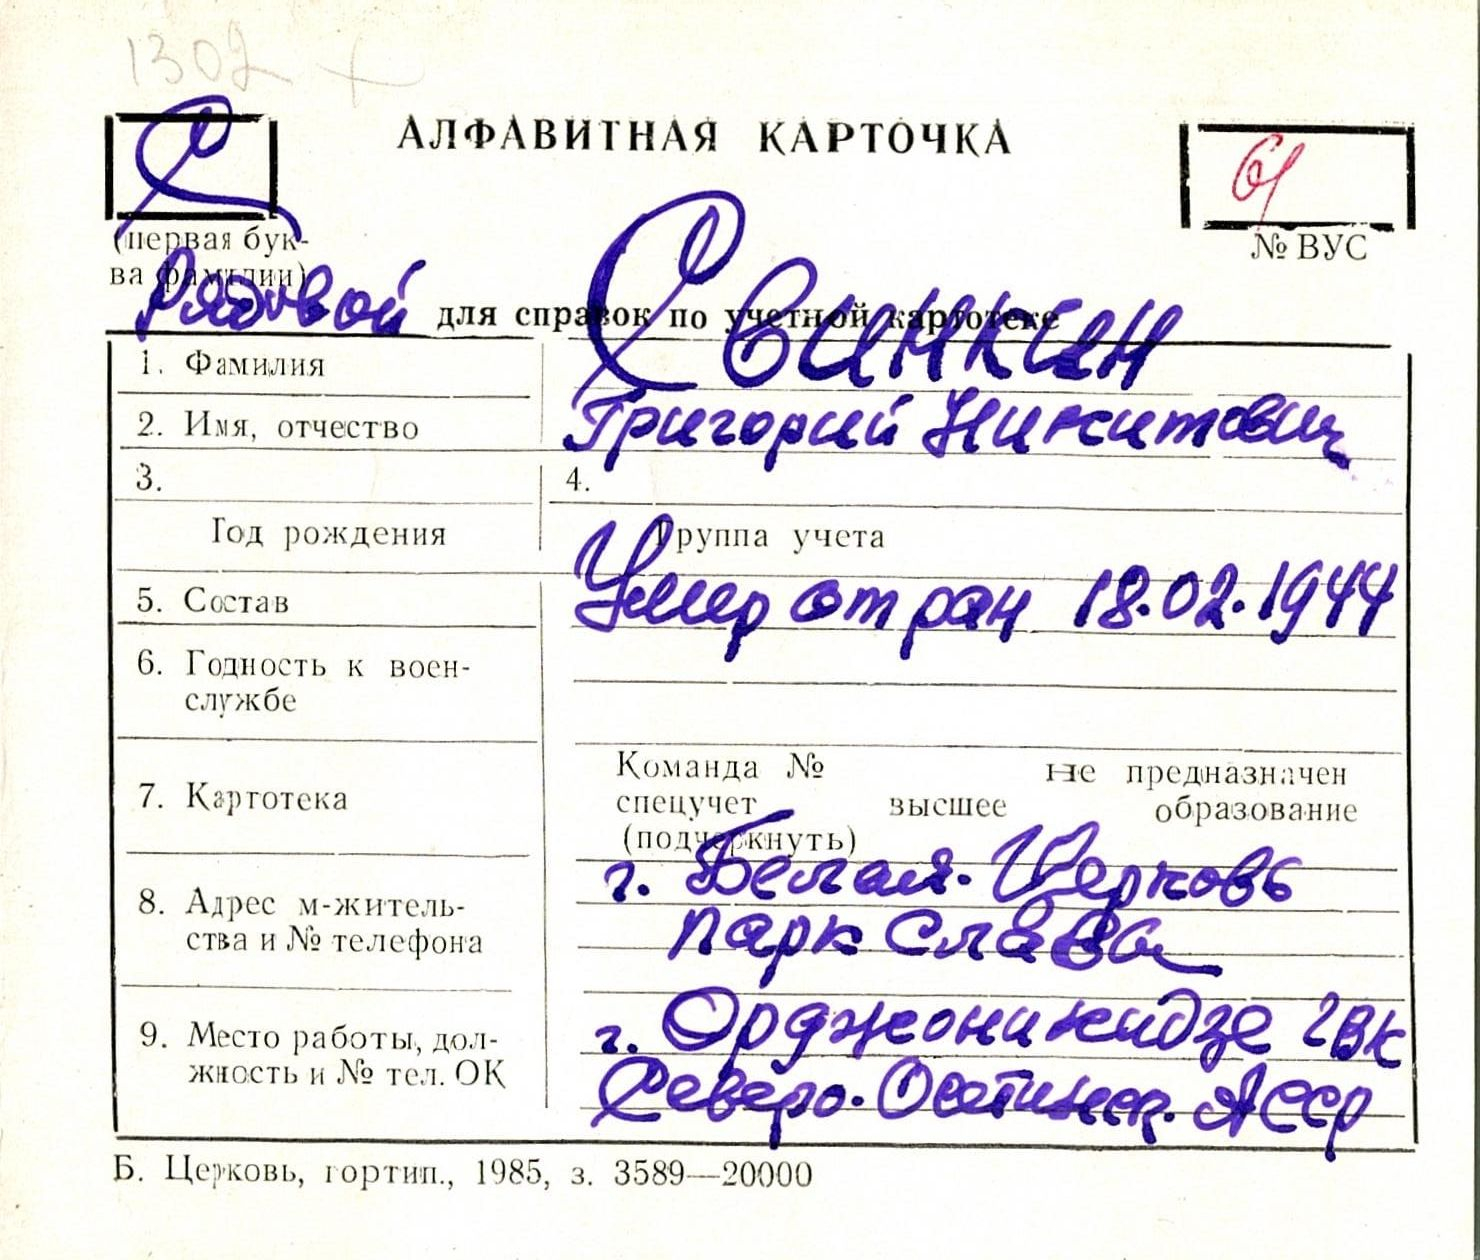 1302
С
АЛФАВИТНАЯ КАРТОЧКА
61
(первая бук-
ва фамилии)
№ ВУС
Рядовой
для справок по учетной картотеке
1. Фамилия
Свинкин
2. Имя, отчество
Григорий Никитович
3.
4.
Год рождения
Группа учета
5. Состав
Умер от ран 18.02.1944
6. Годность к воен-
службе
7. Картотека
Команда № не предназначен
спецучет высшее образование
(подчеркнуть)
8. Адрес м-житель-
ства и № телефона
г. Белая-Церковь
парк Слава
9. Место работы, дол-
жность и № тел. ОК
г. Орджоникидзе ГВК
Северо-Осетинск. АССР
Б. Церковь, гортип., 1985, з. 3589—20000